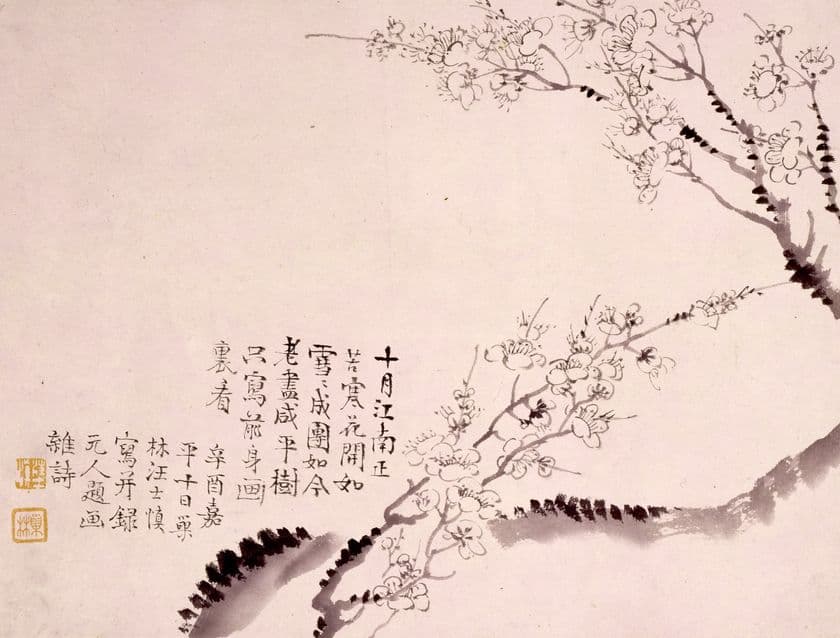 十月江南正
苦寒花開如
雪〻成團如今
老盡咸平樹
只寫前身画
裏看
辛酉嘉
平十日巢
林汪士慎
寫并録
元人題画
雜詩
巢林